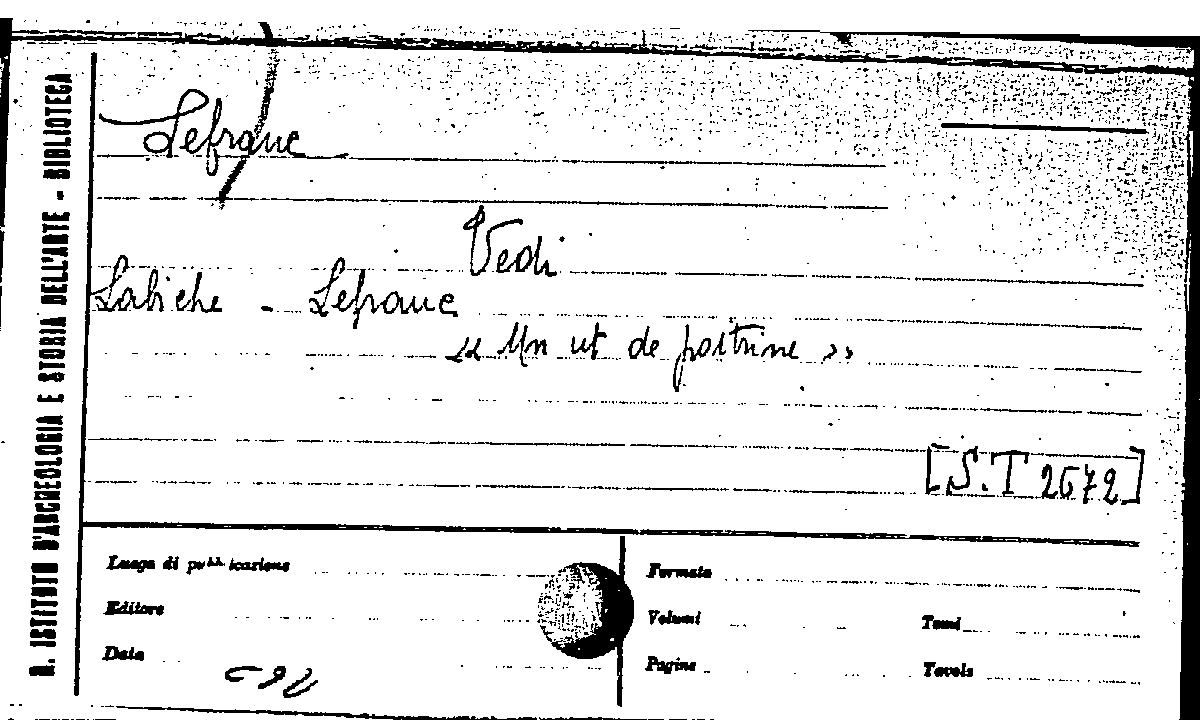 R. ISTITUTO D'ARCHEOLOGIA E STORIA DELL'ARTE - BIBLIOTECA
Lefranc
Vedi
Labiche - Lefranc
« Un ut de poitrine »
[S.T 2672]
Luogo di pubblicazione
Formato
Editore
Volumi
Tomi
Data
Pagine
Tavole